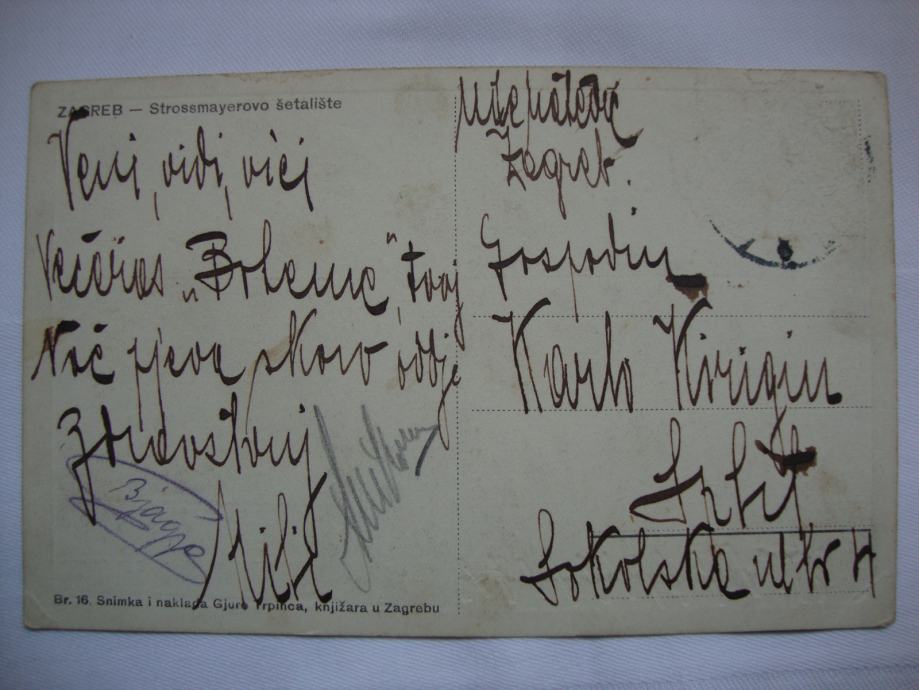 ZAGREB — Strossmayerovo šetalište
Veni, vidi, vici
Večeras „Boheme“, tvoj
Noč pjeva skoro ovdje
Zdravstvuj
Milić
Bjagje
Br. 16. Snimka i naklada Gjure Trpinca, knjižara u Zagrebu
Zagreb.
Gospodin
Karlo Kirigin
Split
Sokolska ul br 4